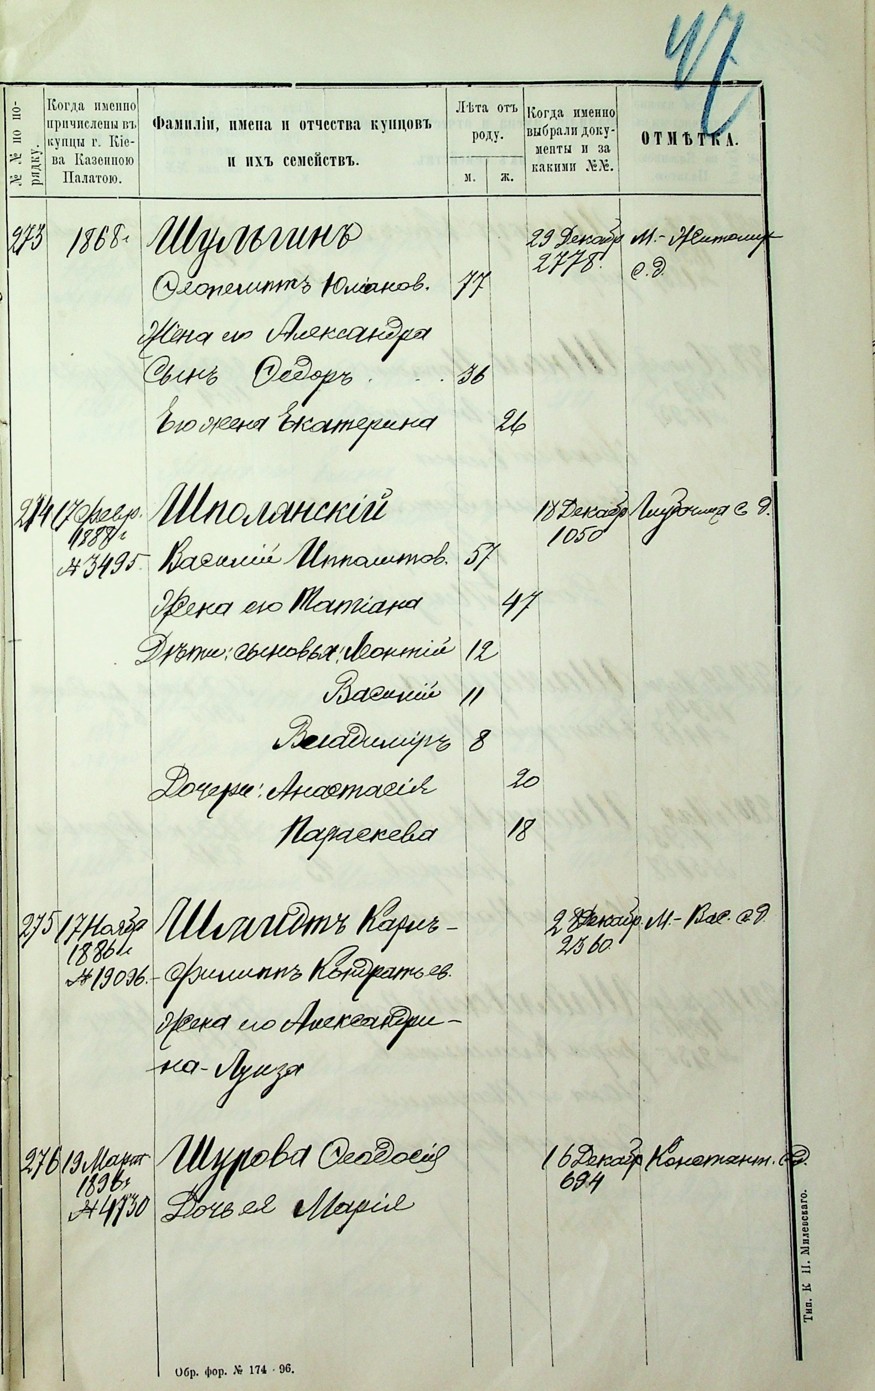 47
№№ по по-
рядку.
Когда именно
причислены въ
купцы г. Кіе-
ва Казенною
Палатою.
Фамиліи, имена и отчества купцовъ
и ихъ семействъ.
Лѣта отъ
роду.
м. ж.
Когда именно
выбрали доку-
менты и за
какими №№.
ОТМѢТКА.
273 1868 г. Шульгинъ 29 Декабр М.-Житомир
2778. с. д.
Феопемптъ Юліанов. 77
Жена его Александра
Сынъ Ѳедоръ . . . 36
Его жена Екатерина 26
274 17 февр. Шполянскій 18 Декабр с. д.
1888 г. 1050
№ 3495. Василій Ипполитов. 57
Жена его Татіана 47
Дѣти: сыновья: Леонтій 12
Василій 11
Владиміръ 8
Дочери: Анастасія 20
Параскева 18
275 17 Ноябр Шмидтъ Карлъ- 28 Декабр М.-Вас. с. д.
1886 г. 2360
№ 19096. -Филиппъ Кондратьев.
Жена его Александри-
на-Луиза
276 19 Март Шурова Феодосія 16 Декабр Константин. с. д.
1896 г. 694
№ 4730 Дочь ея Марія
Обр. фор. № 174 - 96.
Тип. К Н. Милевскаго.